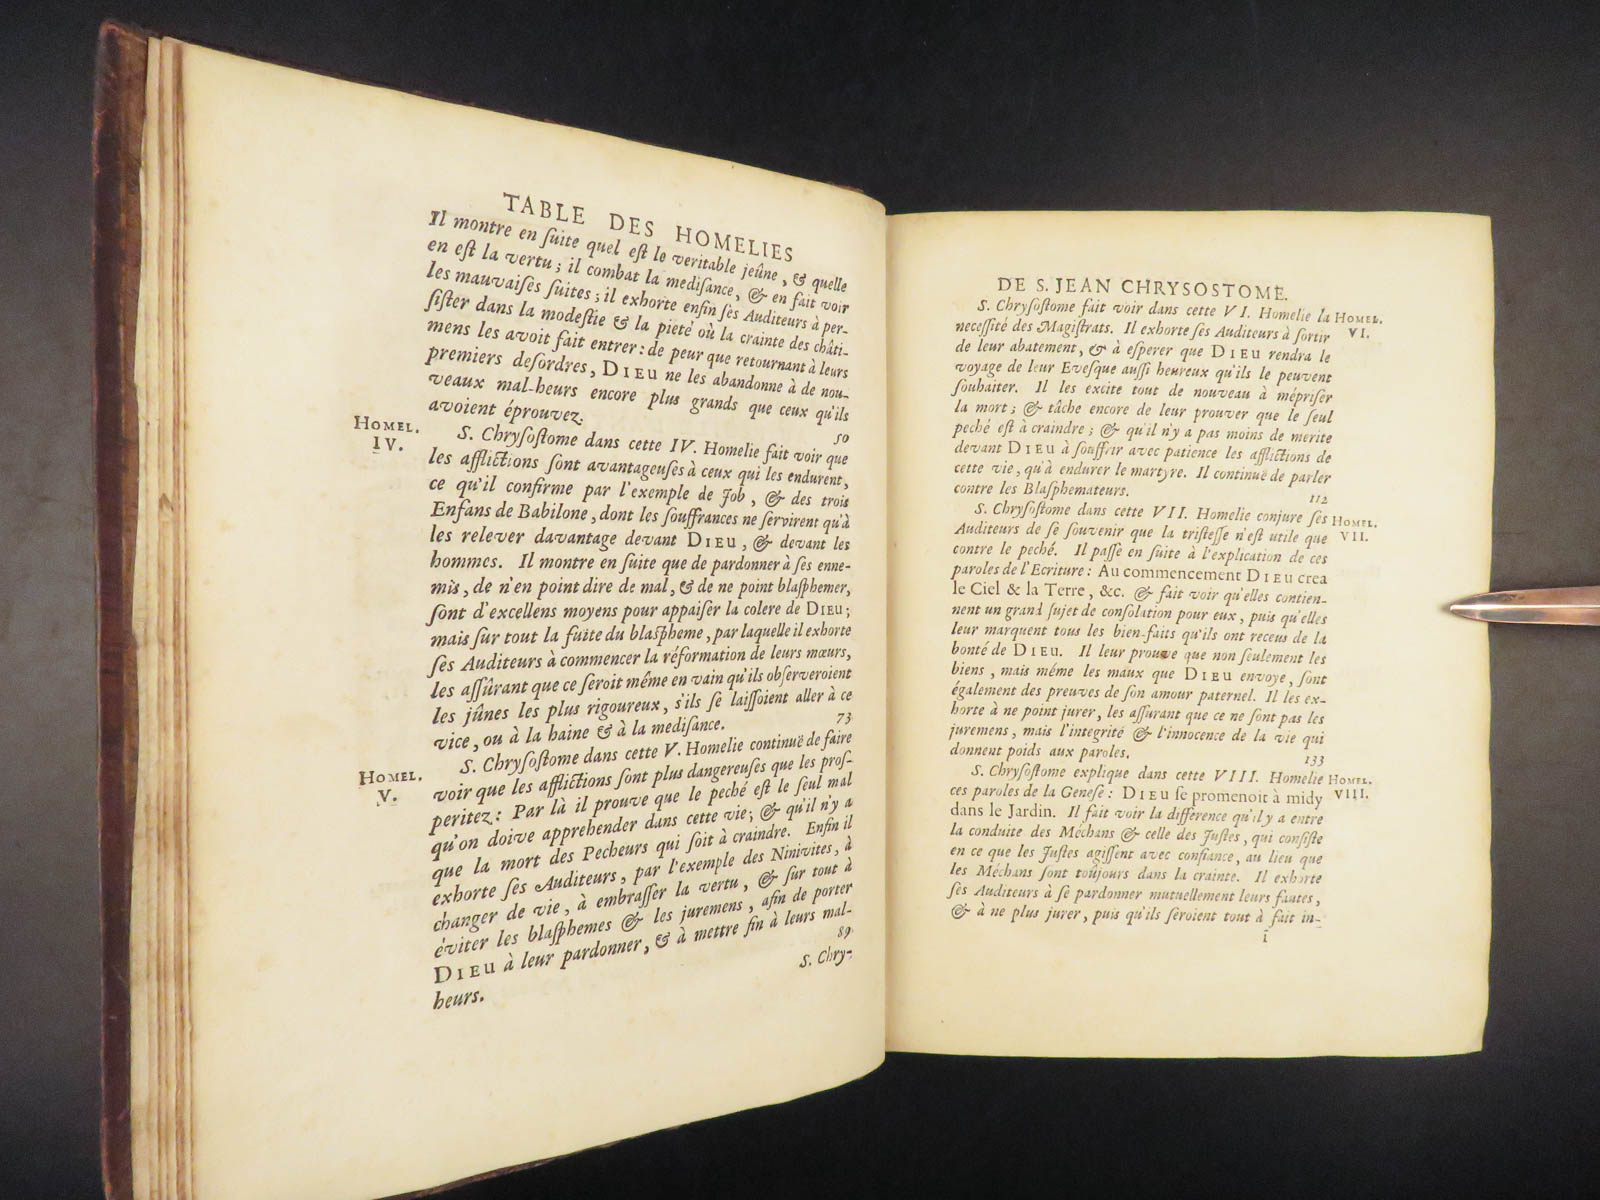 TABLE DES HOMELIES
Il montre en ſuite quel eſt le veritable jeûne, & quelle
en eſt la vertu; il combat la mediſance, & en fait voir
les mauvaiſes ſuites; il exhorte enfin ſes Auditeurs à per-
ſiſter dans la modeſtie & la pieté où la crainte des châti-
mens les avoit fait entrer: de peur que retournant à leurs
premiers deſordres, DIEU ne les abandonne à de nou-
veaux mal-heurs encore plus grands que ceux qu'ils
avoient éprouvez. 50
HOMEL. IV.
S. Chryſoſtome dans cette IV. Homelie fait voir que
les afflictions ſont avantageuſes à ceux qui les endurent,
ce qu'il confirme par l'exemple de Job, & des trois
Enfans de Babilone, dont les ſouffrances ne ſervirent qu'à
les relever davantage devant DIEU, & devant les
hommes. Il montre en ſuite que de pardonner à ſes enne-
mis, de n'en point dire de mal, & de ne point blaſphemer,
ſont d'excellens moyens pour appaiſer la colere de DIEU;
mais ſur tout la fuite du blaſpheme, par laquelle il exhorte
ſes Auditeurs à commencer la réformation de leurs mœurs,
les aſſûrant que ce ſeroit même en vain qu'ils obſerveroient
les jûnes les plus rigoureux, s'ils ſe laiſſoient aller à ce
vice, ou à la haine & à la mediſance. 73
HOMEL. V.
S. Chryſoſtome dans cette V. Homelie continuë de faire
voir que les afflictions ſont plus dangereuſes que les proſ-
peritez: Par là il prouve que le peché eſt le ſeul mal
qu'on doive apprehender dans cette vie; & qu'il n'y a
que la mort des Pecheurs qui ſoit à craindre. Enfin il
exhorte ſes Auditeurs, par l'exemple des Ninivites, à
changer de vie, à embraſſer la vertu, & ſur tout à
éviter les blaſphemes & les juremens, afin de porter
DIEU à leur pardonner, & à mettre fin à leurs mal-
heurs. 89
S. Chry-
DE S. JEAN CHRYSOSTOME.
S. Chryſoſtome fait voir dans cette VI. Homelie la
HOMEL. VI.
neceſſité des Magiſtrats. Il exhorte ſes Auditeurs à ſortir
de leur abatement, & à eſperer que DIEU rendra le
voyage de leur Eveſque auſſi heureux qu'ils le peuvent
ſouhaiter. Il les excite tout de nouveau à mépriſer
la mort; & tâche encore de leur prouver que le ſeul
peché eſt à craindre; & qu'il n'y a pas moins de merite
devant DIEU à ſouffrir avec patience les afflictions de
cette vie, qu'à endurer le martyre. Il continuë de parler
contre les Blaſphemateurs. 112
S. Chryſoſtome dans cette VII. Homelie conjure ſes
HOMEL. VII.
Auditeurs de ſe ſouvenir que la triſteſſe n'eſt utile que
contre le peché. Il paſſe en ſuite à l'explication de ces
paroles de l'Ecriture: Au commencement DIEU crea
le Ciel & la Terre, &c. & fait voir qu'elles contien-
nent un grand ſujet de conſolation pour eux, puis qu'elles
leur marquent tous les bien-faits qu'ils ont receus de la
bonté de DIEU. Il leur prouve que non ſeulement les
biens, mais même les maux que DIEU envoye, ſont
également des preuves de ſon amour paternel. Il les ex-
horte à ne point jurer, les aſſurant que ce ne ſont pas les
juremens, mais l'integrité & l'innocence de la vie qui
donnent poids aux paroles. 133
S. Chryſoſtome explique dans cette VIII. Homelie
HOMEL. VIII.
ces paroles de la Geneſe: DIEU ſe promenoit à midy
dans le Jardin. Il fait voir la différence qu'il y a entre
la conduite des Méchans & celle des Juſtes, qui conſiſte
en ce que les Juſtes agiſſent avec confiance, au lieu que
les Méchans ſont toûjours dans la crainte. Il exhorte
ſes Auditeurs à ſe pardonner mutuellement leurs fautes,
& à ne plus jurer, puis qu'ils ſeroient tout à fait in-
i